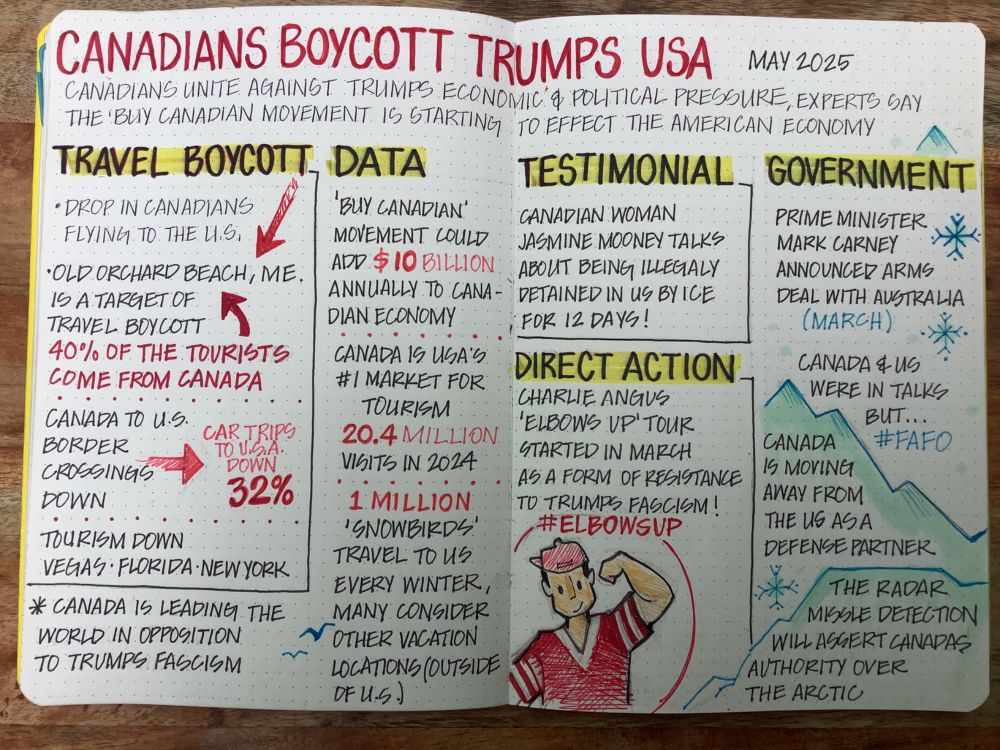 CANADIANS BOYCOTT TRUMPS USA
MAY 2025
CANADIANS UNITE AGAINST TRUMPS ECONOMIC & POLITICAL PRESSURE, EXPERTS SAY
THE 'BUY CANADIAN MOVEMENT IS STARTING TO EFFECT THE AMERICAN ECONOMY
TRAVEL BOYCOTT
• DROP IN CANADIANS
FLYING TO THE U.S.
• OLD ORCHARD BEACH, ME.
IS A TARGET OF
TRAVEL BOYCOTT
40% OF THE TOURISTS
COME FROM CANADA
CANADA TO U.S.
BORDER
CROSSINGS
DOWN
CAR TRIPS
TO U.S.A.
DOWN
32%
TOURISM DOWN
VEGAS • FLORIDA • NEW YORK
* CANADA IS LEADING THE
WORLD IN OPPOSITION
TO TRUMPS FASCISM
DATA
'BUY CANADIAN'
MOVEMENT COULD
ADD $10 BILLION
ANNUALLY TO CANA-
DIAN ECONOMY
CANADA IS USA'S
#1 MARKET FOR
TOURISM
20.4 MILLION
VISITS IN 2024
1 MILLION
'SNOWBIRDS'
TRAVEL TO US
EVERY WINTER,
MANY CONSIDER
OTHER VACATION
LOCATIONS (OUTSIDE
OF U.S.)
TESTIMONIAL
CANADIAN WOMAN
JASMINE MOONEY TALKS
ABOUT BEING ILLEGALY
DETAINED IN US BY ICE
FOR 12 DAYS!
DIRECT ACTION
CHARLIE ANGUS
'ELBOWS UP' TOUR
STARTED IN MARCH
AS A FORM OF RESISTANCE
TO TRUMPS FASCISM!
#ELBOWSUP
GOVERNMENT
PRIME MINISTER
MARK CARNEY
ANNOUNCED ARMS
DEAL WITH AUSTRALIA
(MARCH)
CANADA & US
WERE IN TALKS
BUT...
#FAFO
CANADA
IS MOVING
AWAY FROM
THE US AS A
DEFENSE PARTNER
THE RADAR
MISSLE DETECTION
WILL ASSERT CANADAS
AUTHORITY OVER
THE ARCTIC